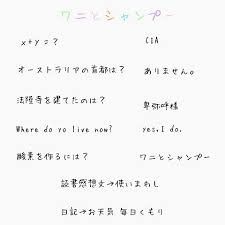 ワニとシャンプー
x+y=? CIA
オーストラリアの首都は? ありません。
法隆寺を建てたのは? 卑弥呼様
Where do yo live now? yes,I do.
酸素を作るには? ワニとシャンプー
読書感想文→使いまわし
日記→お天気 毎日くもり